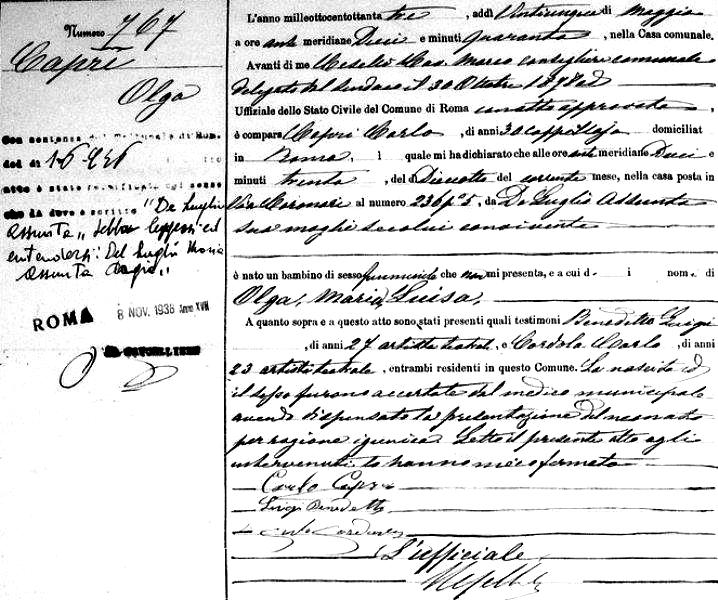 Numero 767
Capri
Olga
Con sentenza del Tribunale di Rom.
del di 1-6-936
atto è stato rettificato nel senso
che là dove è scritto "De Luglio
Assunta" debba leggersi ed
intendersi: Del Luglio Maria
Assunta
ROMA 8 NOV. 1938 Anno XVII
IL CANCELLIERE
L'anno milleottocentottanta tre, addì Venticinque di Maggio
a ore ante meridiane Dieci e minuti quaranta, nella Casa comunale.
Avanti di me Cav. Marco consigliere comunale
delegato dal Sindaco il 30 Ottobre 1878 ed
Uffiziale dello Stato Civile del Comune di Roma con atto approvato
è comparso Capri Carlo, di anni 30 domiciliat
in Roma, il quale mi ha dichiarato che alle ore ante meridiane Dieci e
minuti trenta, del dì Diciotto del corrente mese, nella casa posta in
Via Coronari al numero 236 p° 5, da De Luglio Assunta
sua moglie seco lui convivente
è nato un bambino di sesso femminile che non mi presenta, e a cui d i nom di
Olga, Maria, Luisa.
A quanto sopra e a questo atto sono stati presenti quali testimoni Benedetto Luigi
, di anni 27 artista teatrale, e Cordola Carlo, di anni
23 artista teatrale, entrambi residenti in questo Comune. La nascita ed
il sesso furono accertate dal medico municipale
avendo dispensato la presentazione del neonato
per ragione igienica. Letto il presente atto agli
intervenuti lo hanno meco firmato
Carlo Capri
Luigi Benedetto
L'ufficiale